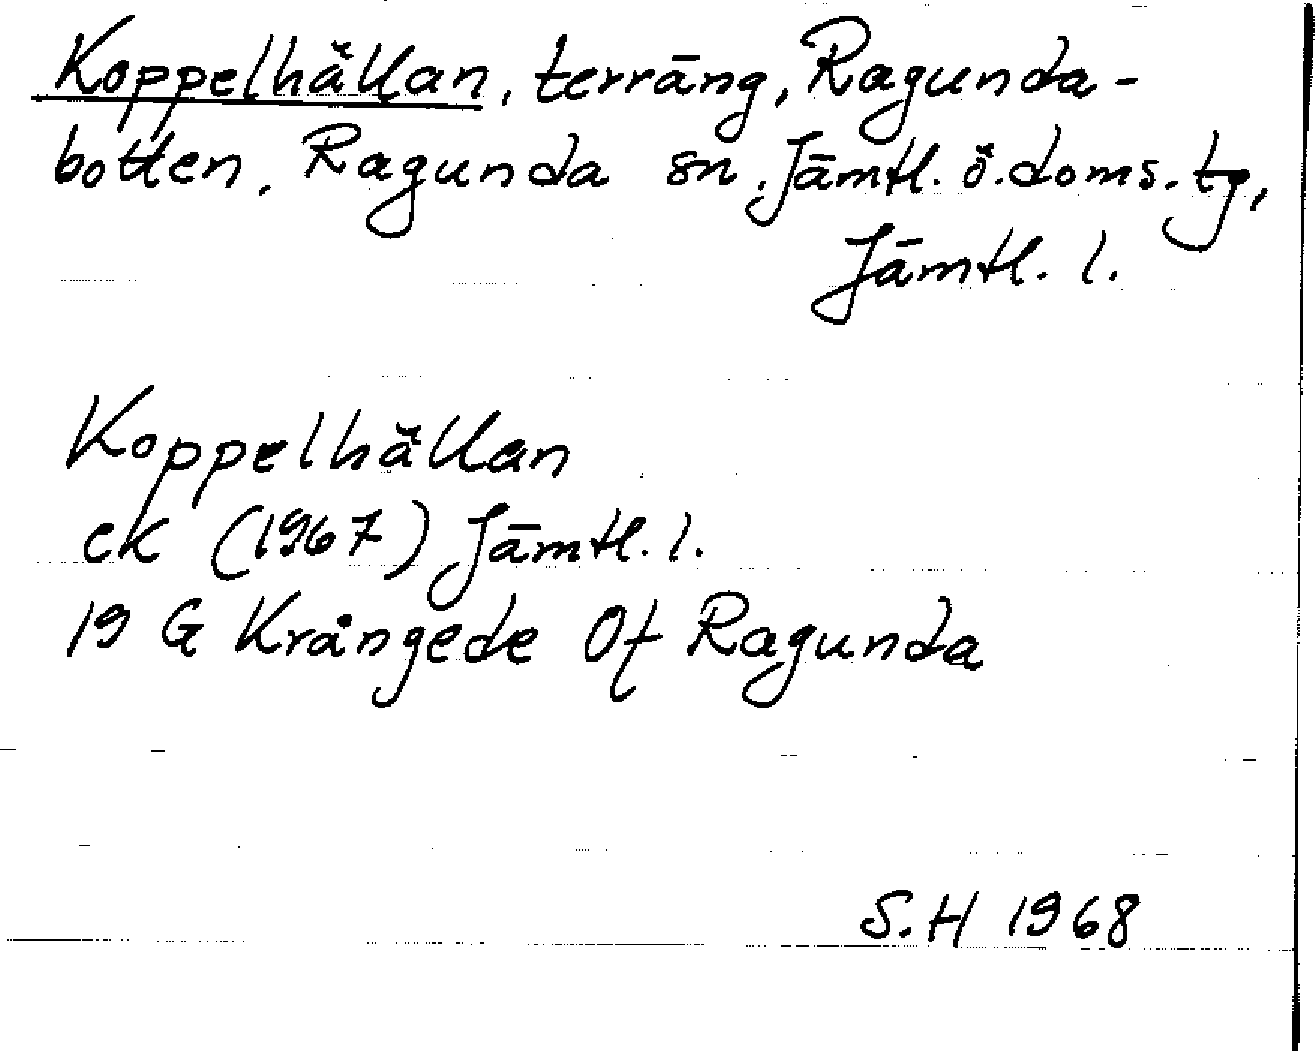 Koppelhällan, terräng, Ragunda-
botten, Ragunda sn, Jämtl. ö. doms. tg,
Jämtl. l.
Koppelhällan
ek (1967) Jämtl. l.
19 G Krångede Of Ragunda
S.H 1968